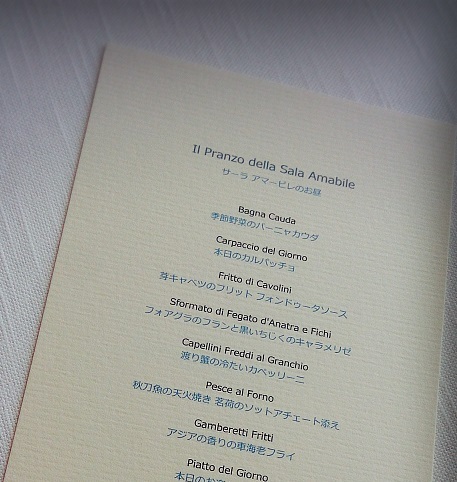 Il Pranzo della Sala Amabile
サーラ アマービレのお昼
Bagna Cauda
季節野菜のバーニャカウダ
Carpaccio del Giorno
本日のカルパッチョ
Fritto di Cavolini
芽キャベツのフリット フォンドゥータソース
Sformato di Fegato d'Anatra e Fichi
フォアグラのフランと黒いちじくのキャラメリゼ
Capellini Freddi al Granchio
渡り蟹の冷たいカペッリーニ
Pesce al Forno
秋刀魚の天火焼き 茗荷のソットアチェート添え
Gamberetti Fritti
アジアの香りの車海老フライ
Piatto del Giorno
本日のお